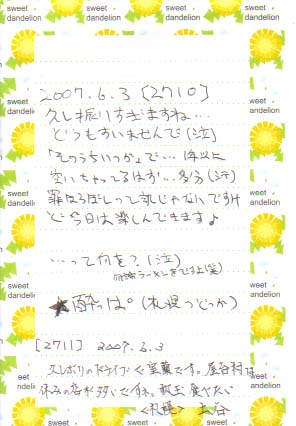 sweet dandelion
2007.6.3 [2710]
久し振りすぎますね…
どうもすいませんで(泣)
「そのうちいつか」で… 1年以上
空いちゃってるはず…多分(汗)
罪ほろぼしって訳じゃないですけ
ど今日は楽しんできます♪
…って何を?(泣)
ラーメンをですよ(笑)
★酔っぱ。(札幌つどっか)
[2711] 2007.6.3
久しぶりのドライブ
休みの店が多いですね。
<札幌>